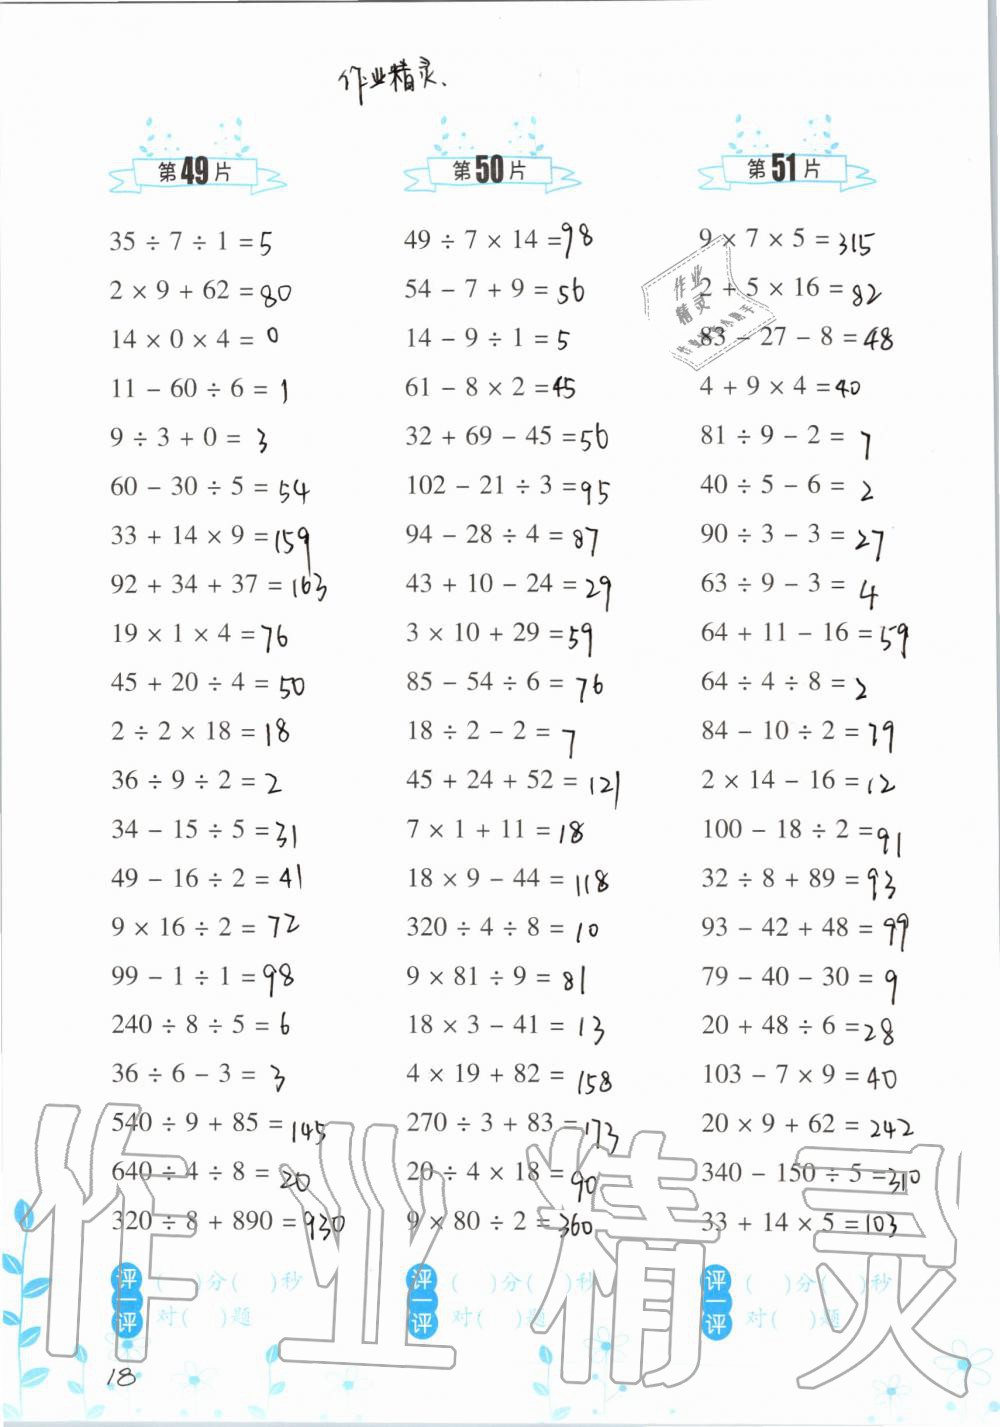 作业精灵、
第49片
35 ÷ 7 ÷ 1 = 5
2 × 9 + 62 = 80
14 × 0 × 4 = 0
11 − 60 ÷ 6 = 1
9 ÷ 3 + 0 = 3
60 − 30 ÷ 5 = 54
33 + 14 × 9 = 159
92 + 34 + 37 = 163
19 × 1 × 4 = 76
45 + 20 ÷ 4 = 50
2 ÷ 2 × 18 = 18
36 ÷ 9 ÷ 2 = 2
34 − 15 ÷ 5 = 31
49 − 16 ÷ 2 = 41
9 × 16 ÷ 2 = 72
99 − 1 ÷ 1 = 98
240 ÷ 8 ÷ 5 = 6
36 ÷ 6 − 3 = 3
540 ÷ 9 + 85 = 145
640 ÷ 4 ÷ 8 = 20
320 ÷ 8 + 890 = 930
评一评
( )分( )秒
对( )题
第50片
49 ÷ 7 × 14 = 98
54 − 7 + 9 = 56
14 − 9 ÷ 1 = 5
61 − 8 × 2 = 45
32 + 69 − 45 = 56
102 − 21 ÷ 3 = 95
94 − 28 ÷ 4 = 87
43 + 10 − 24 = 29
3 × 10 + 29 = 59
85 − 54 ÷ 6 = 76
18 ÷ 2 − 2 = 7
45 + 24 + 52 = 121
7 × 1 + 11 = 18
18 × 9 − 44 = 118
320 ÷ 4 ÷ 8 = 10
9 × 81 ÷ 9 = 81
18 × 3 − 41 = 13
4 × 19 + 82 = 158
270 ÷ 3 + 83 = 173
20 ÷ 4 × 18 = 90
9 × 80 ÷ 2 = 360
评一评
( )分( )秒
对( )题
第51片
9 × 7 × 5 = 315
2 + 5 × 16 = 82
83 − 27 − 8 = 48
4 + 9 × 4 = 40
81 ÷ 9 − 2 = 7
40 ÷ 5 − 6 = 2
90 ÷ 3 − 3 = 27
63 ÷ 9 − 3 = 4
64 + 11 − 16 = 59
64 ÷ 4 ÷ 8 = 2
84 − 10 ÷ 2 = 79
2 × 14 − 16 = 12
100 − 18 ÷ 2 = 91
32 ÷ 8 + 89 = 93
93 − 42 + 48 = 99
79 − 40 − 30 = 9
20 + 48 ÷ 6 = 28
103 − 7 × 9 = 40
20 × 9 + 62 = 242
340 − 150 ÷ 5 = 310
33 + 14 × 5 = 103
评一评
( )分( )秒
对( )题
作业
精灵
作业精灵
18